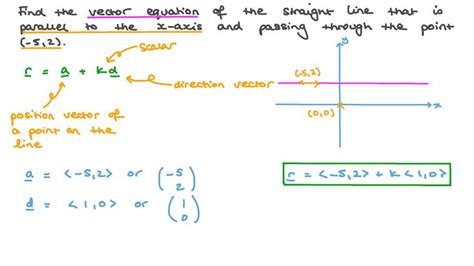 Find the vector equation of the straight line that is
parallel to the x-axis and passing through the point
(-5,2).
scalar
r = a + kd
direction vector
position vector of
a point on the
line
y
(-5,2)
x
(0,0)
a = <-5,2> or (-5
2)
d = <1,0> or (1
0)
r = <-5,2> + k<1,0>